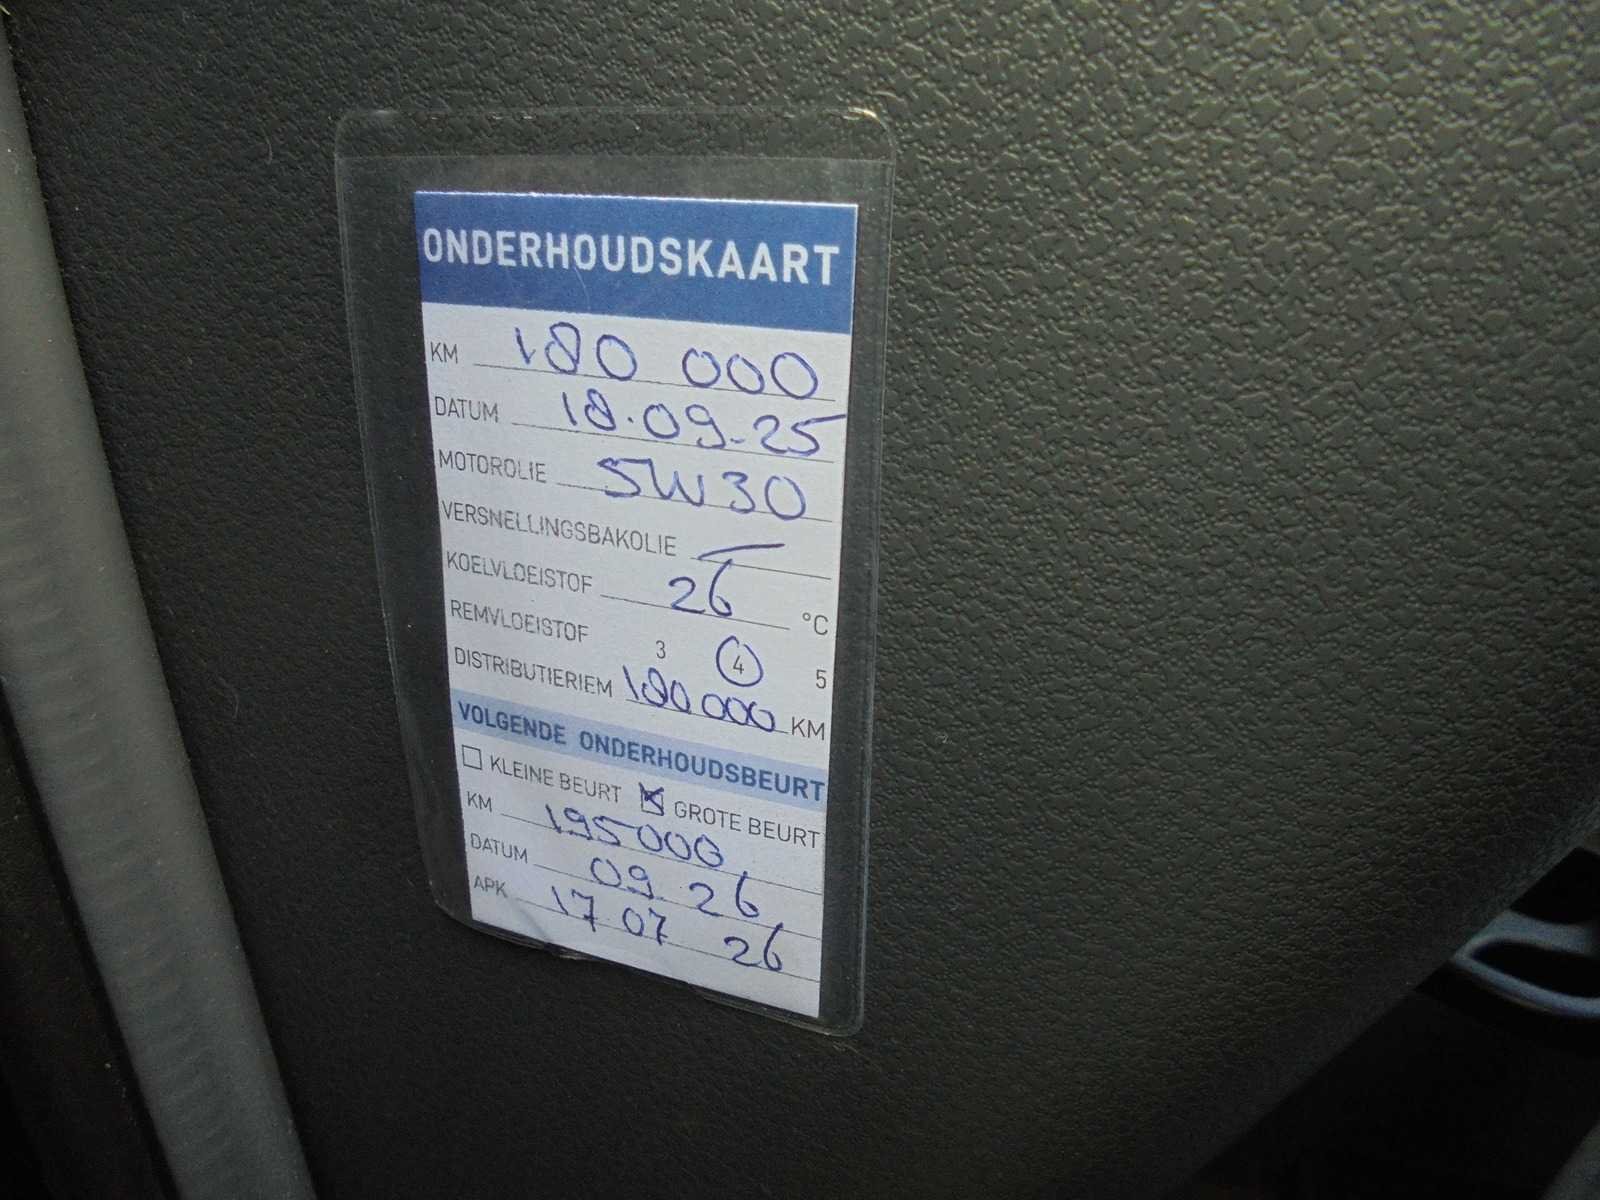 ONDERHOUDSKAART
KM 180 000
DATUM 18.09-25
MOTOROLIE 5W30
VERSNELLINGSBAKOLIE —
KOELVLOEISTOF 26 °C
REMVLOEISTOF 3 4 5
DISTRIBUTIERIEM 180000 KM
VOLGENDE ONDERHOUDSBEURT
KLEINE BEURT GROTE BEURT
KM 195000
DATUM 09 26
APK 17 07 26